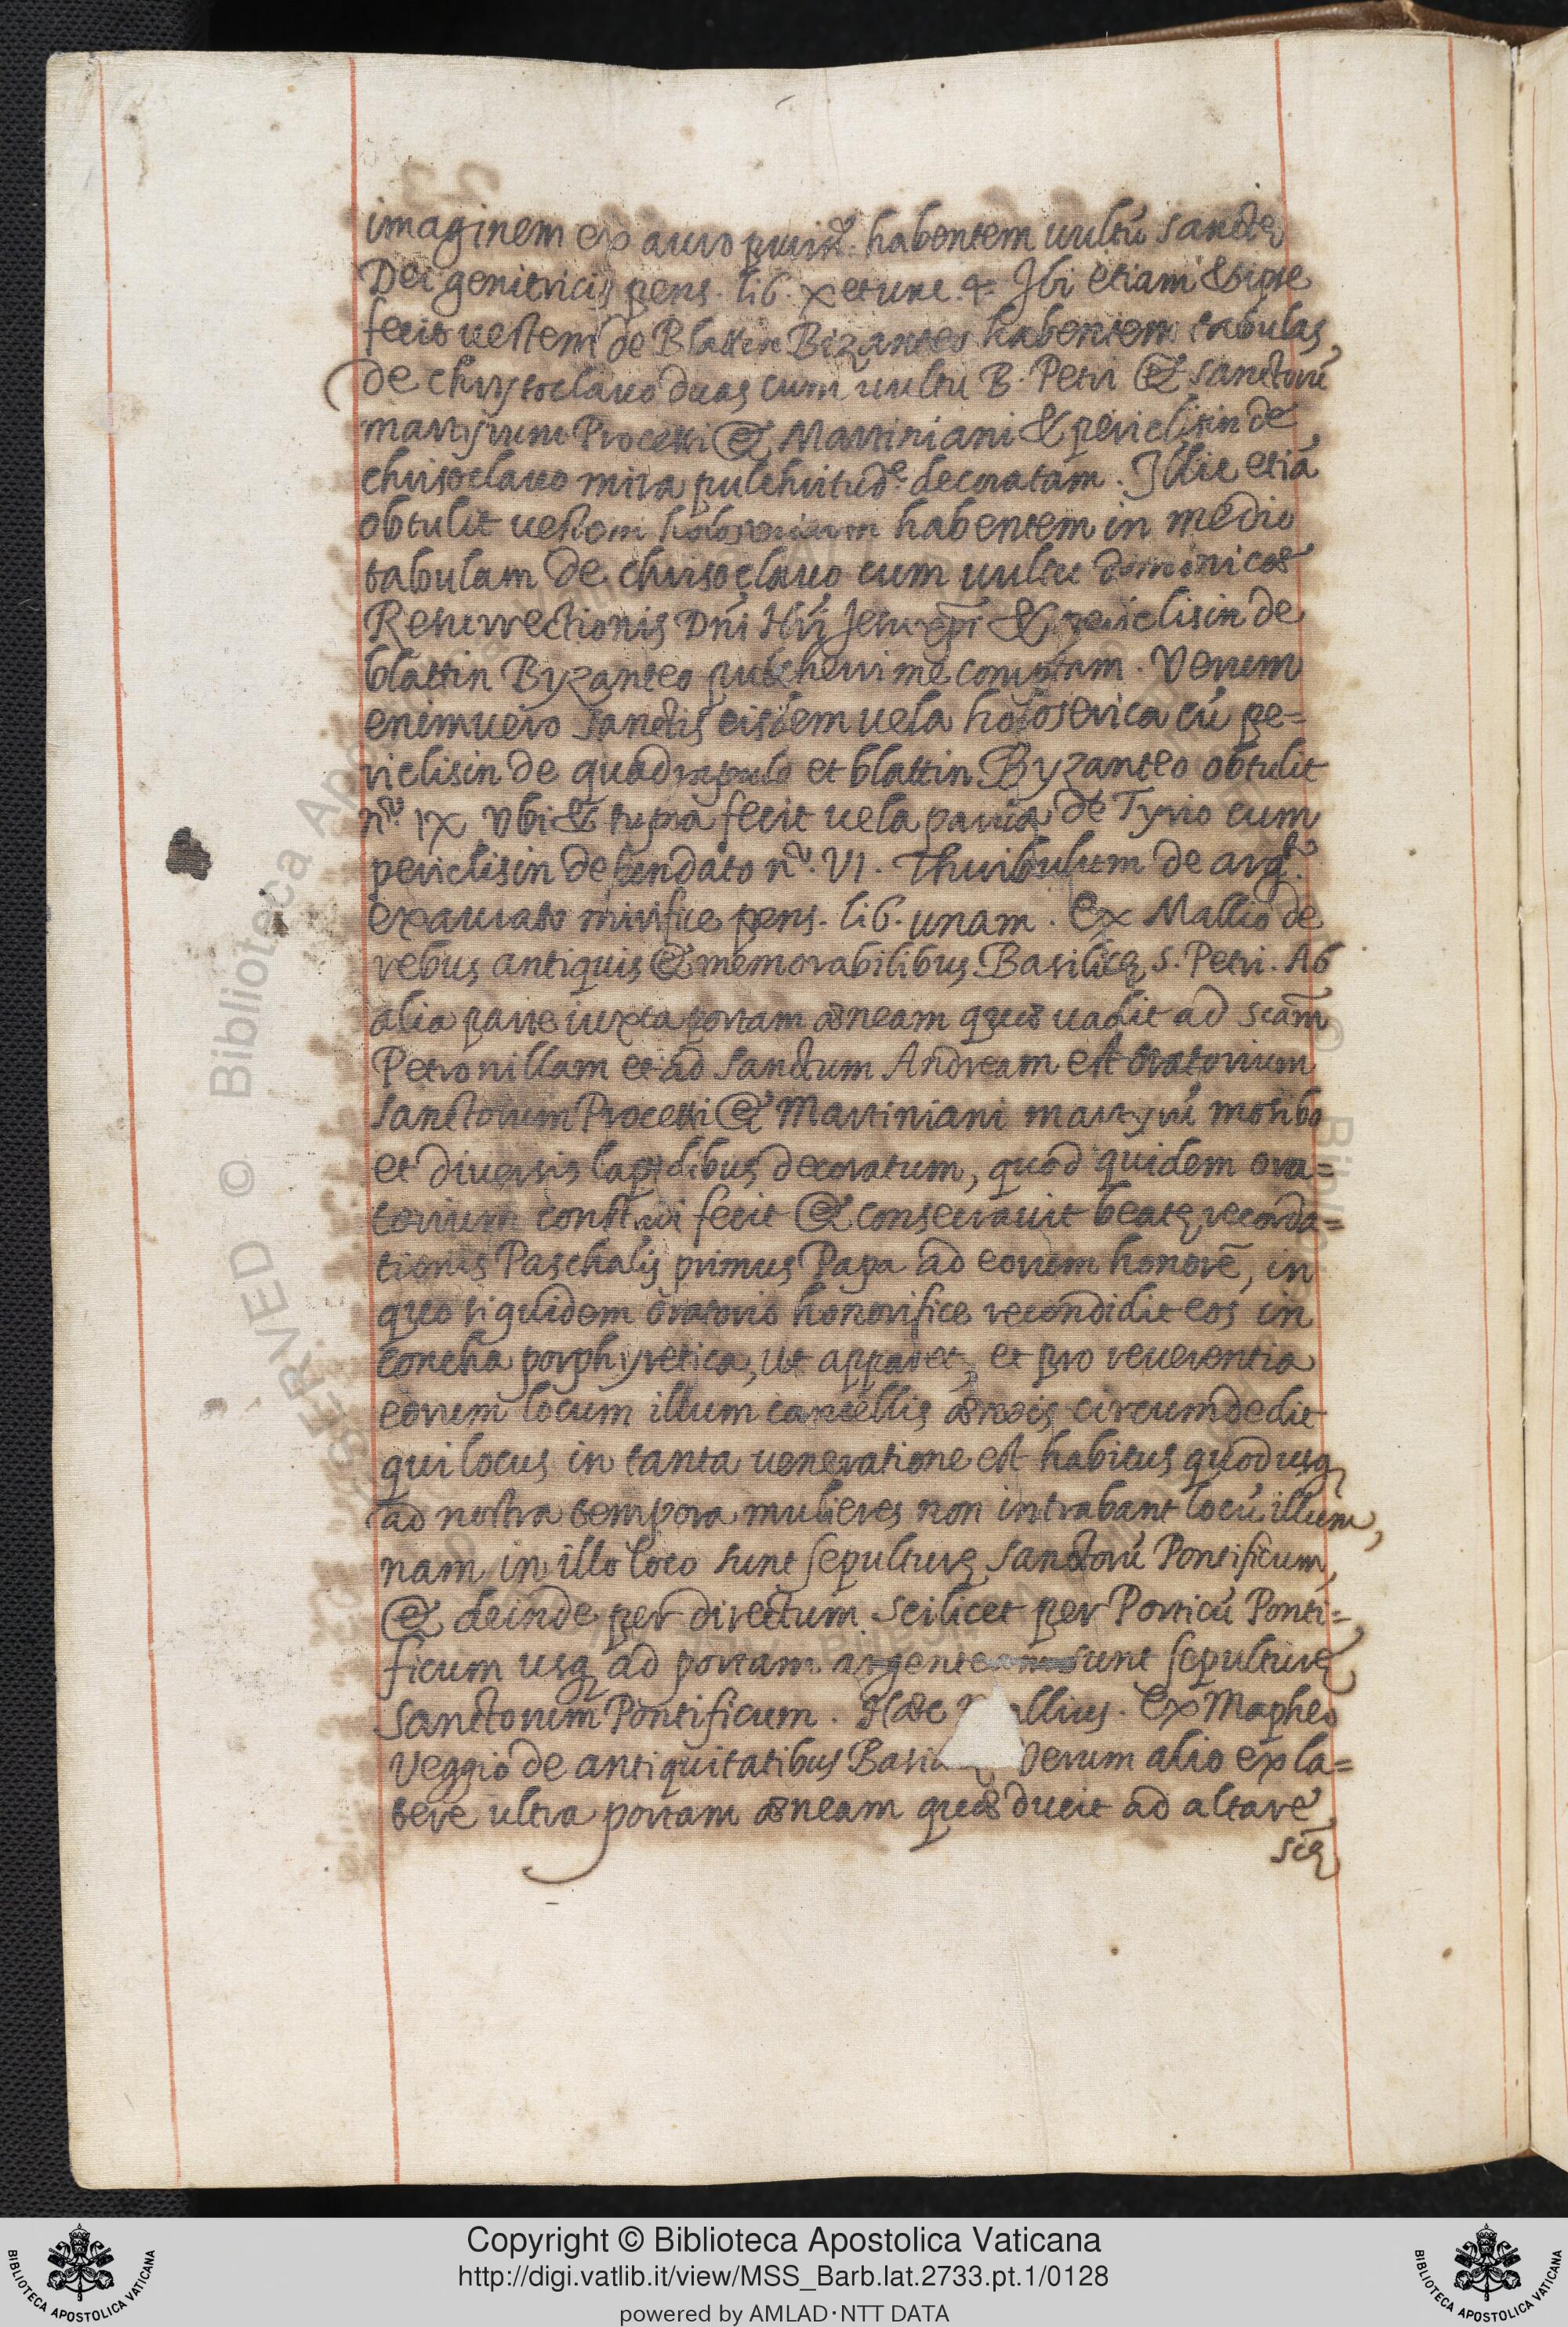 imaginem ex auro puriss. habentem uultú sanctę
Dei genitricis pens. lib. x et unc. 4. Ibi etiam & ipse
fecit uestem de Blattin Bizanteo habentem tabulas
de chrysoclauo duas cum uultu B. Petri & sanctorú
martyrum Processi & Martiniani & periclisin de
chrisoclauo mira pulchritud.e decoratam. Illic etiá
obtulit uestem holosericam habentem in medio
tabulam de chrisoclauo cum uultu dominicæ
Resurrectionis Dñi Ñri Jesu xp̄i & periclisin de
blattin Byzanteo pulcherrime comptam. Verum
enimuero sanctis eisdem uela holoserica cú pe=
riclisin de quadrapulo et blattin Byzanteo obtulit
n.º IX Vbi & supra fecit uela parua de Tyrio cum
periclisin de fundato n.º VI. Thuribulum de arg.t
exaurato mirifice pens. lib. unam. Ex Mallio de
rebus antiquis & memorabilibus Basilicę S. Petri. Ab
alia parte iuxta portam æneam quæ uadit ad scām
Petronillam et ad sanctum Andream est oratorium
sanctorum Processi & Martiniani martyrú mosibo
et diuersis lapidibus decoratum, quod quidem ora=
torium construi fecit & consecrauit beatę recorda=
tionis Paschalis primus Papa ad eorum honorē, in
quo siquidem oratorio honorifice recondidit eos in
concha porphyretica, ut apparet, et pro reuerentia
eorum locum illum cancellis æneis circumdedit
qui locus in tanta ueneratione est habitus quod usq
ad nostra tempora mulieres non intrabant locú illum,
nam in illo loco sunt sepulturę Sanctorú Pontificum,
& deinde per directum scilicet per Porticú Ponti=
ficum usq ad portam argenteam sunt sepulturę
Sanctorum Pontificum. Hæc allius. Ex Mapheo
Veggio de antiquitatibus Verum alio ex la=
tere ultra portam æneam quæ ducit ad altare
scę
Copyright © Biblioteca Apostolica Vaticana
http://digi.vatlib.it/view/MSS_Barb.lat.2733.pt.1/0128
powered by AMLAD·NTT DATA
BIBLIOTECA APOSTOLICA VATICANA
BIBLIOTECA APOSTOLICA VATICANA